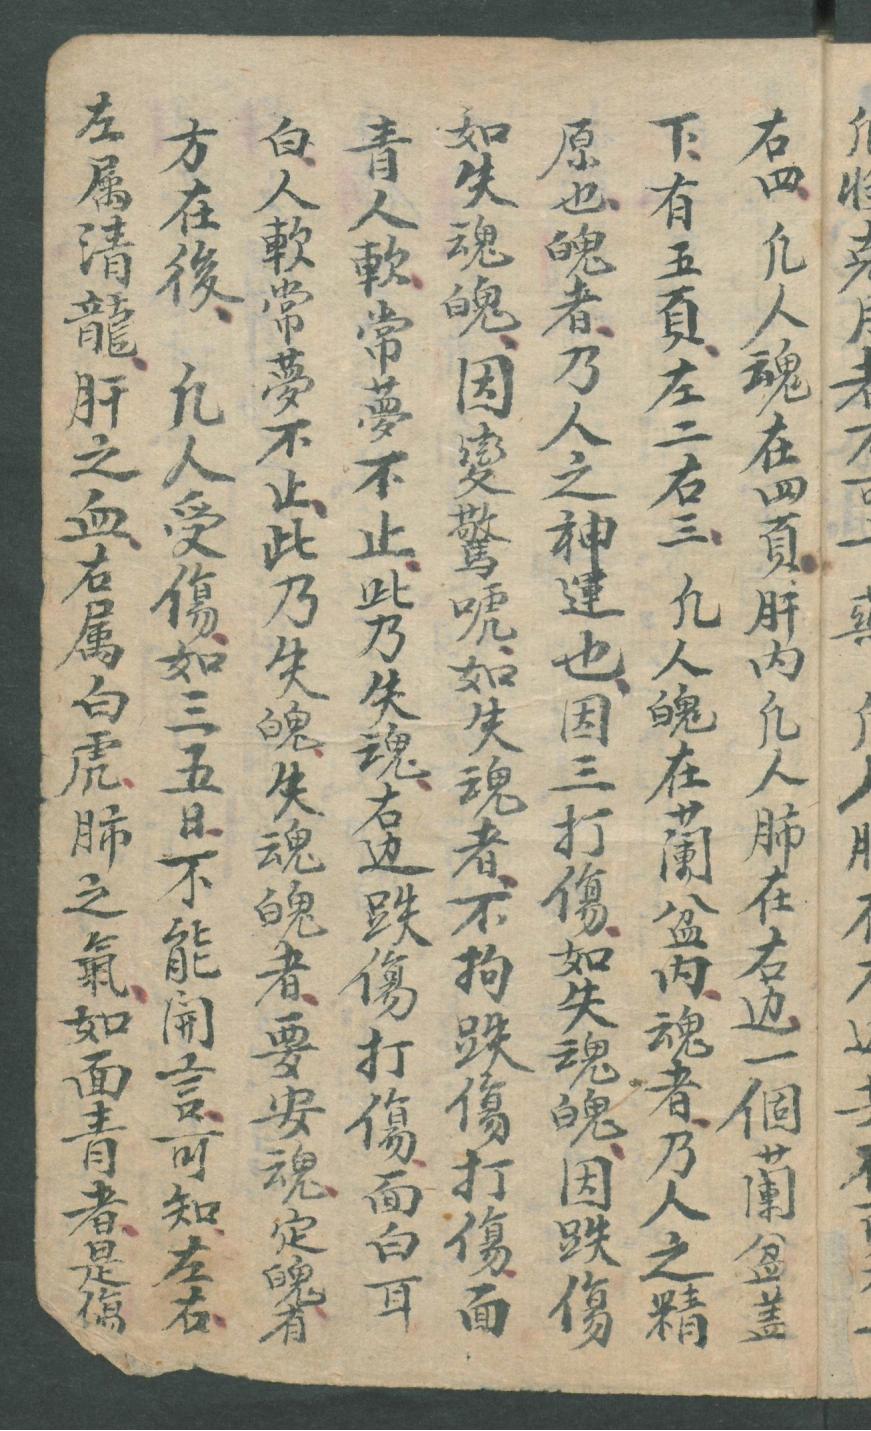 右四 凢人魂在四頁肝内凢人肺在右边一個蘭盆蓋
下有五頁左二右三 凢人魄在蘭盆内魂者乃人之精
原也魄者乃人之神運也因三打傷如失魂魄因跌傷
如失魂魄因变驚唬如失魂者不拘跌傷打傷面
青人軟常夢不止此乃失魂右边跌傷打傷面白耳
白人軟常夢不止此乃失魄失魂魄者要安魂定魄有
方在後 凢人受傷如三五日不能開言可知左右
左属清龍肝之血右属白虎肺之氣如面青者是傷